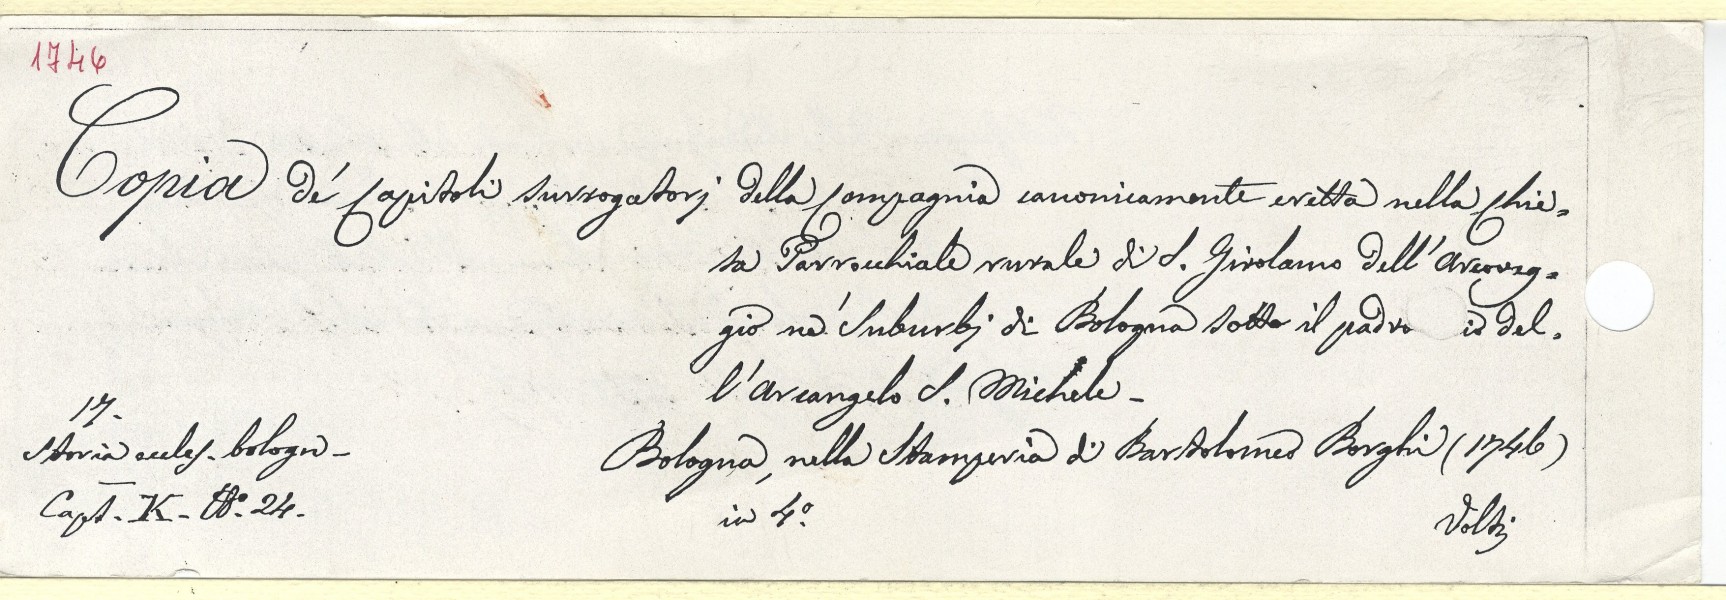 1746
Copia de' Capitoli surrogatorj della Compagnia canonicamente eretta nella Chie=
sa Parrocchiale rurale di S. Girolamo dell'Arcoveg=
gio ne' Suburbj di Bologna sotto il padro io del=
l'Arcangelo S. Michele -
17.
Storia eccles. bologn -
Bologna, nella Stamperia di Bartolomeo Borghi (1746)
Capt. K - N.° 24.
in 4.°
Volti